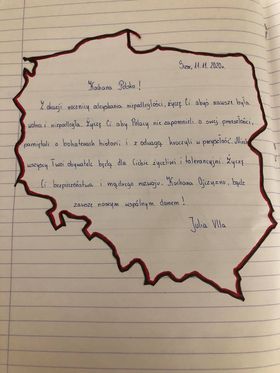 11.11.2020r.
Kochana Polsko!
Z okazji rocznicy odzyskania niepodległości, życzę Ci abyś zawsze była
wolna i niepodległa. Życzę Ci aby Polacy nie zapomnieli o swej przeszłości,
pamiętali o bohaterach historii i z odwagą kroczyli w przyszłość. Niech
wszyscy Twoi obywatele będą dla Ciebie życzliwi i tolerancyjni. Życzę
Ci bezpieczeństwa i mądrego rozwoju. Kochana Ojczyzno, bądź
zawsze naszym wspólnym domem!
Julia